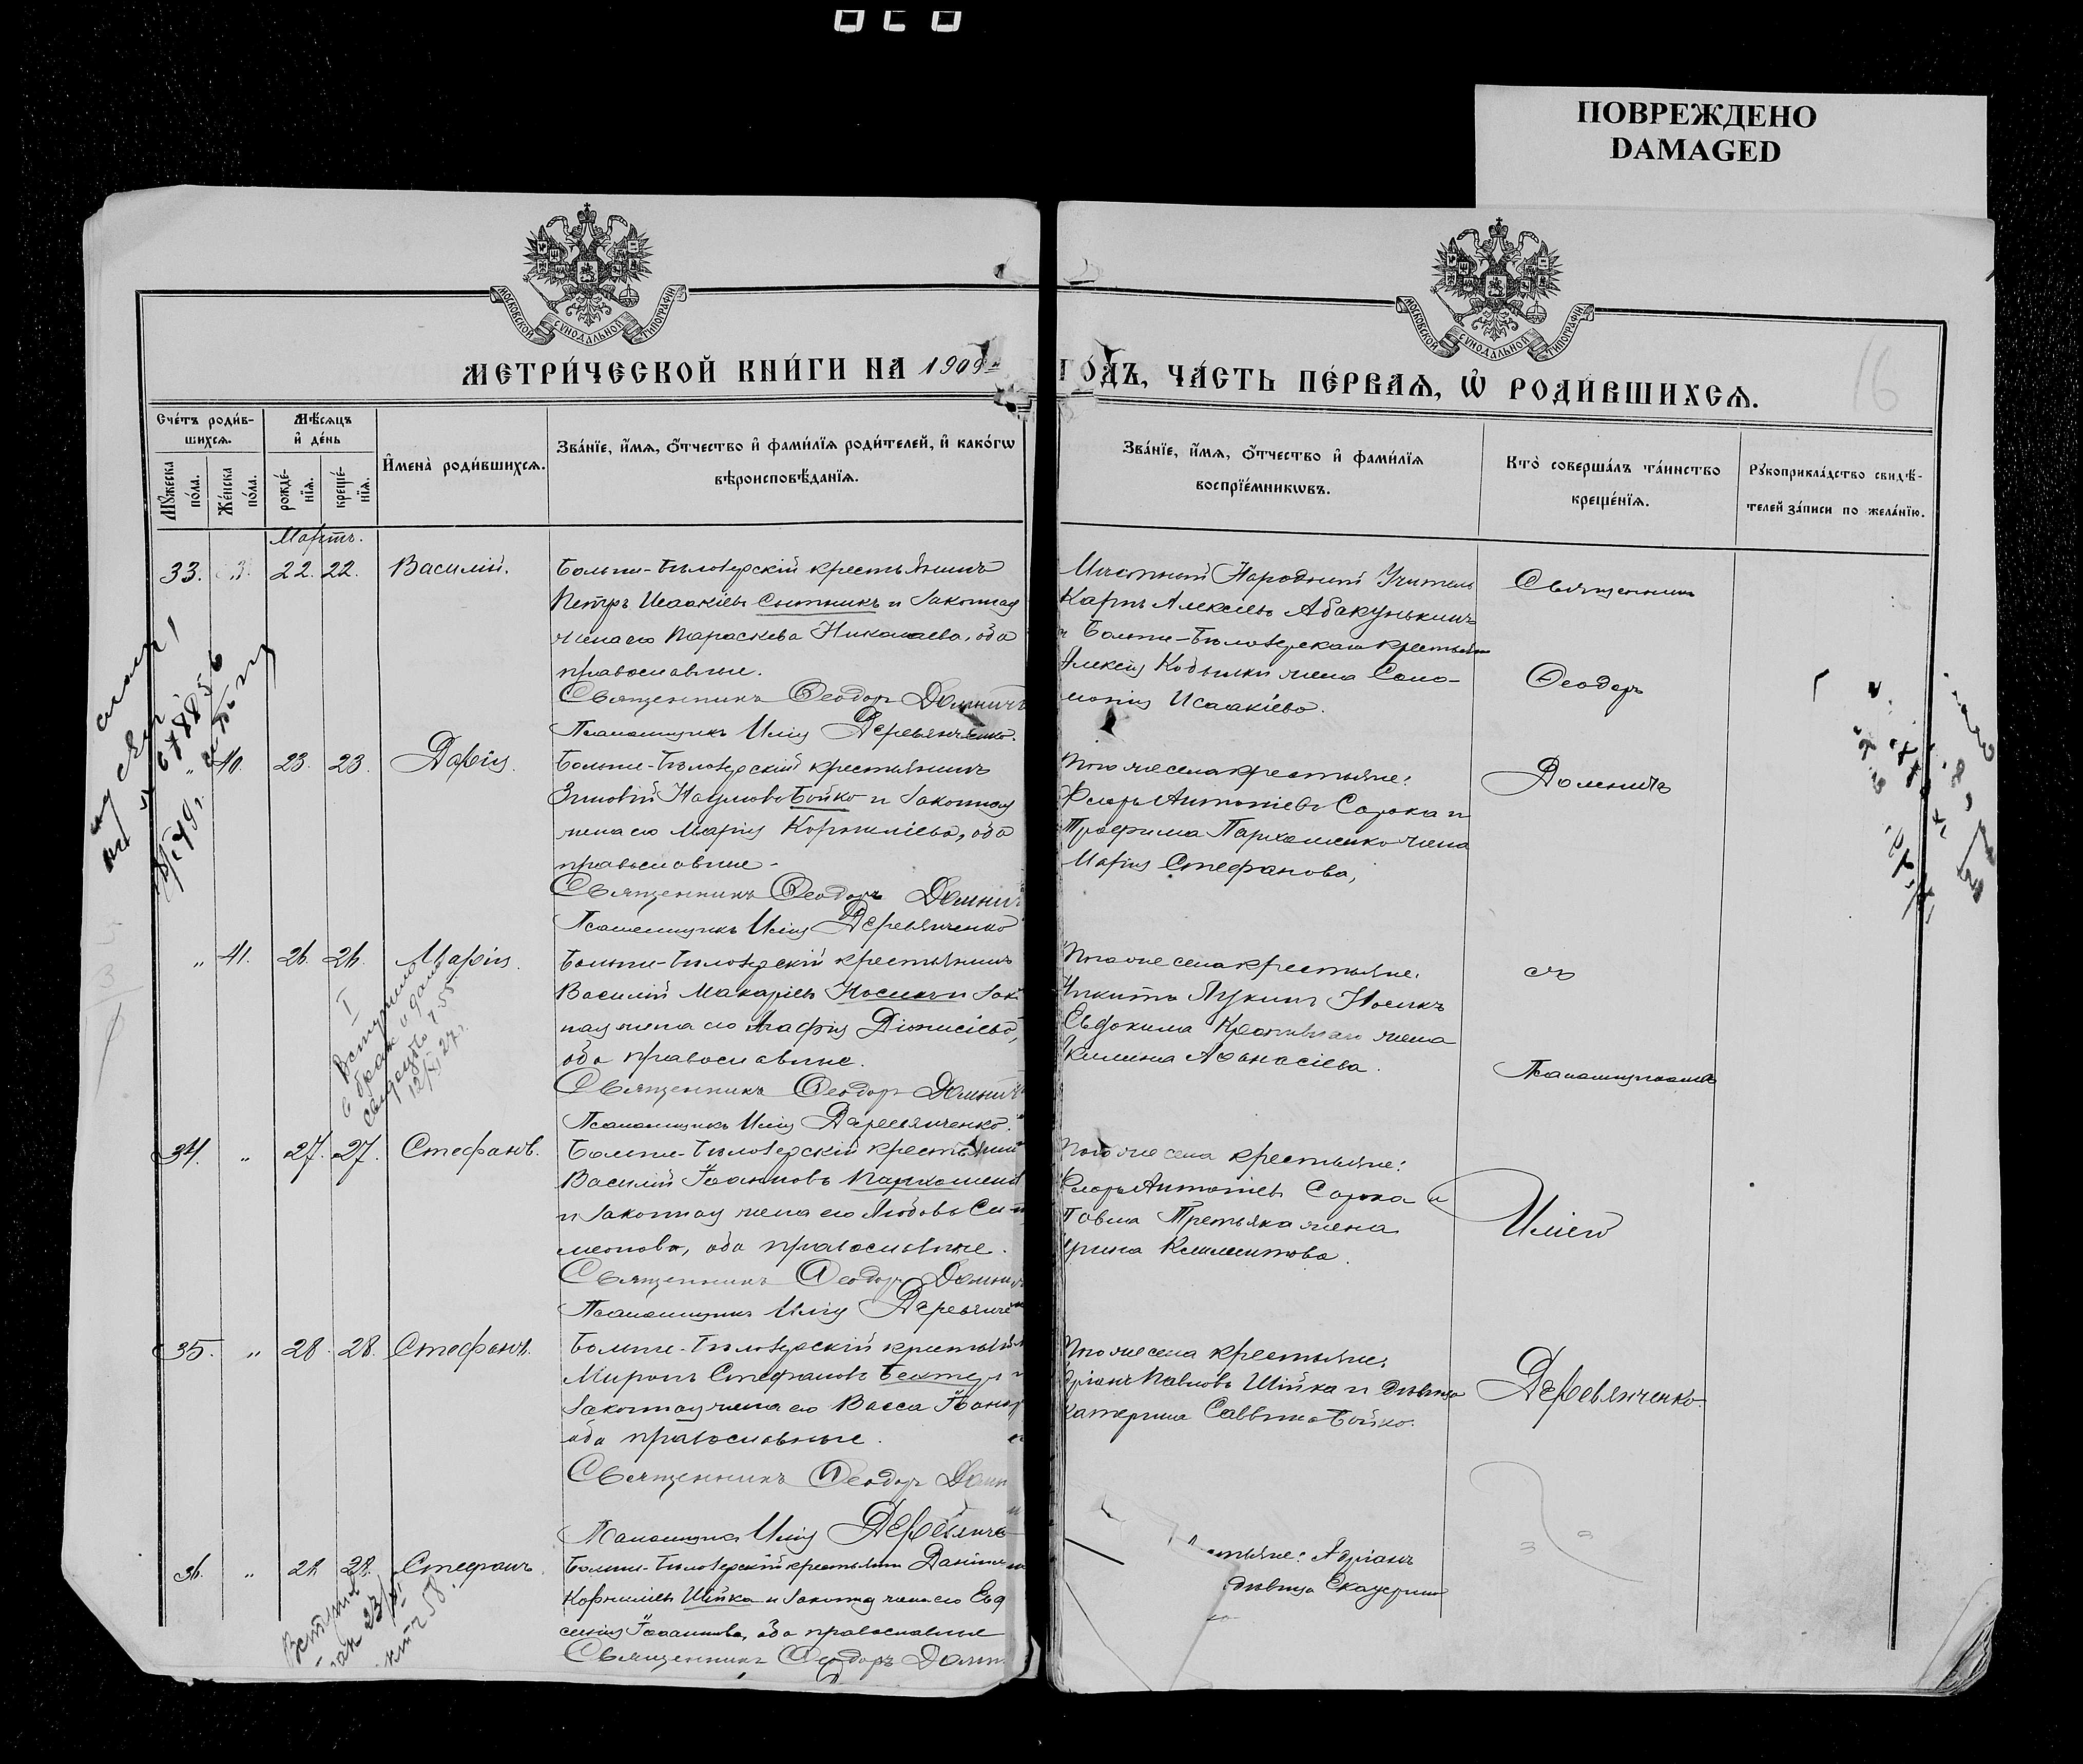 ПОВРЕЖДЕНО
DAMAGED
МОСКОВСКОЙ СѴНОДАЛЬНОЙ ТИПОГРАФІИ
МОСКОВСКОЙ СѴНОДАЛЬНОЙ ТИПОГРАФІИ
МЕТРИ́ЧЕСКОЙ КНИ́ГИ НА 1909
ГО́ДЪ, ЧА́СТЬ ПЕ́РВАѦ, Ѡ҆ РОДИ́ВШИХСѦ.
16
Сче́тъ роди́в-
шихсѧ.
Мꙋ́жеска по́ла.
Же́нска по́ла.
Мѣ́сѧцъ
и҆ де́нь
рожде́-
нїѧ.
креще́-
нїѧ.
И҆мена̀ роди́вшихсѧ.
Зва́нїе, и҆́мѧ, ѻ҆́тчество и҆ фами́лїѧ роди́телей, и҆ како́гѡ
вѣроисповѣ́данїѧ.
Зва́нїе, и҆́мѧ, ѻ҆́тчество и҆ фами́лїѧ
воспрїе́мникѡвъ.
Кто̀ соверша́лъ та́инство
креще́нїѧ.
Рꙋкоприкла́дство свидѣ́-
телей за́писи по жела́нїю.
Мартъ.
33. 22. 22. Василій.
Больше-Бѣлозерскій крестьянинъ
Петръ Исаакіевъ Сытникъ и законная
жена его Параскева Николаева, оба
православные.
Священникъ Ѳеодоръ Доминичъ
Псаломщикъ Илія Деревянченко.
Мѣстный Народный Учитель
Карпъ Алексѣевъ Абакунькинъ
и Больше-Бѣлозерскаго крестьян
Алексѣя Кобылки жена Соло-
монія Исаакіева.
Священникъ
Ѳеодоръ
" 40. 23. 23. Дарія.
Больше-Бѣлозерскій крестьянинъ
Зиновій Наумовъ Бойко и законная
жена его Марія Корниліева, оба
православные.
Священникъ Ѳеодоръ Домини
Псаломщикъ Илія Деревянченко
Того же села крестьяне:
Флоръ Антоніевъ Сорока и
Трофима Пархоменко жена
Марія Стефанова,
Доминичъ
" 41. 26. 26. Марія.
Больше-Бѣлозерскій крестьянинъ
Василій Макаріевъ Носикъ и зак
ная жена его Марфа Діонисіева,
оба православные.
Священникъ Ѳеодоръ Доминич
Псаломщикъ Илія Деревянченко.
Того же села крестьяне:
Никита Лукинъ Носикъ
Евдокима жена
Акилина Аѳанасіева.
съ
Псаломщикомъ
I
Вступила
в брак и дано
свидецтво 755
12/XI 27 г.
34. " 27. 27. Стефанъ.
Больше-Бѣлозерскій крестьянин
Василій Іоанновъ Пархоменк
и законная жена его Любовь Си-
меонова, оба православные.
Священникъ Ѳеодоръ Домини
Псаломщикъ Илія Деревянче
Того же села крестьяне:
Флоръ Антоніевъ Сорока и
Павла Третьяка жена
Ирина Климентова.
Иліею
35. " 28. 28. Стефанъ.
Больше-Бѣлозерскій крестьян
Миронъ Стефановъ Бехтер и
законная жена его Васса Іоан
оба православные.
Священникъ Ѳеодоръ Доми
Псаломщикъ Илія Деревянче
Того же села крестьяне:
Адріанъ Павловъ Шійка и дѣвица
Екатерина Саввина Бойко.
Деревянченко
36. " 28. 28. Стефанъ.
Больше-Бѣлозерскій крестьянин Даніилъ
Корниліевъ Шійка и законная жена его Евд
Іоаннова, оба православные
Священникъ Ѳеодоръ Доми
стьяне: Адріанъ
дѣвица Екатерин
Вступил
23/VI
58.